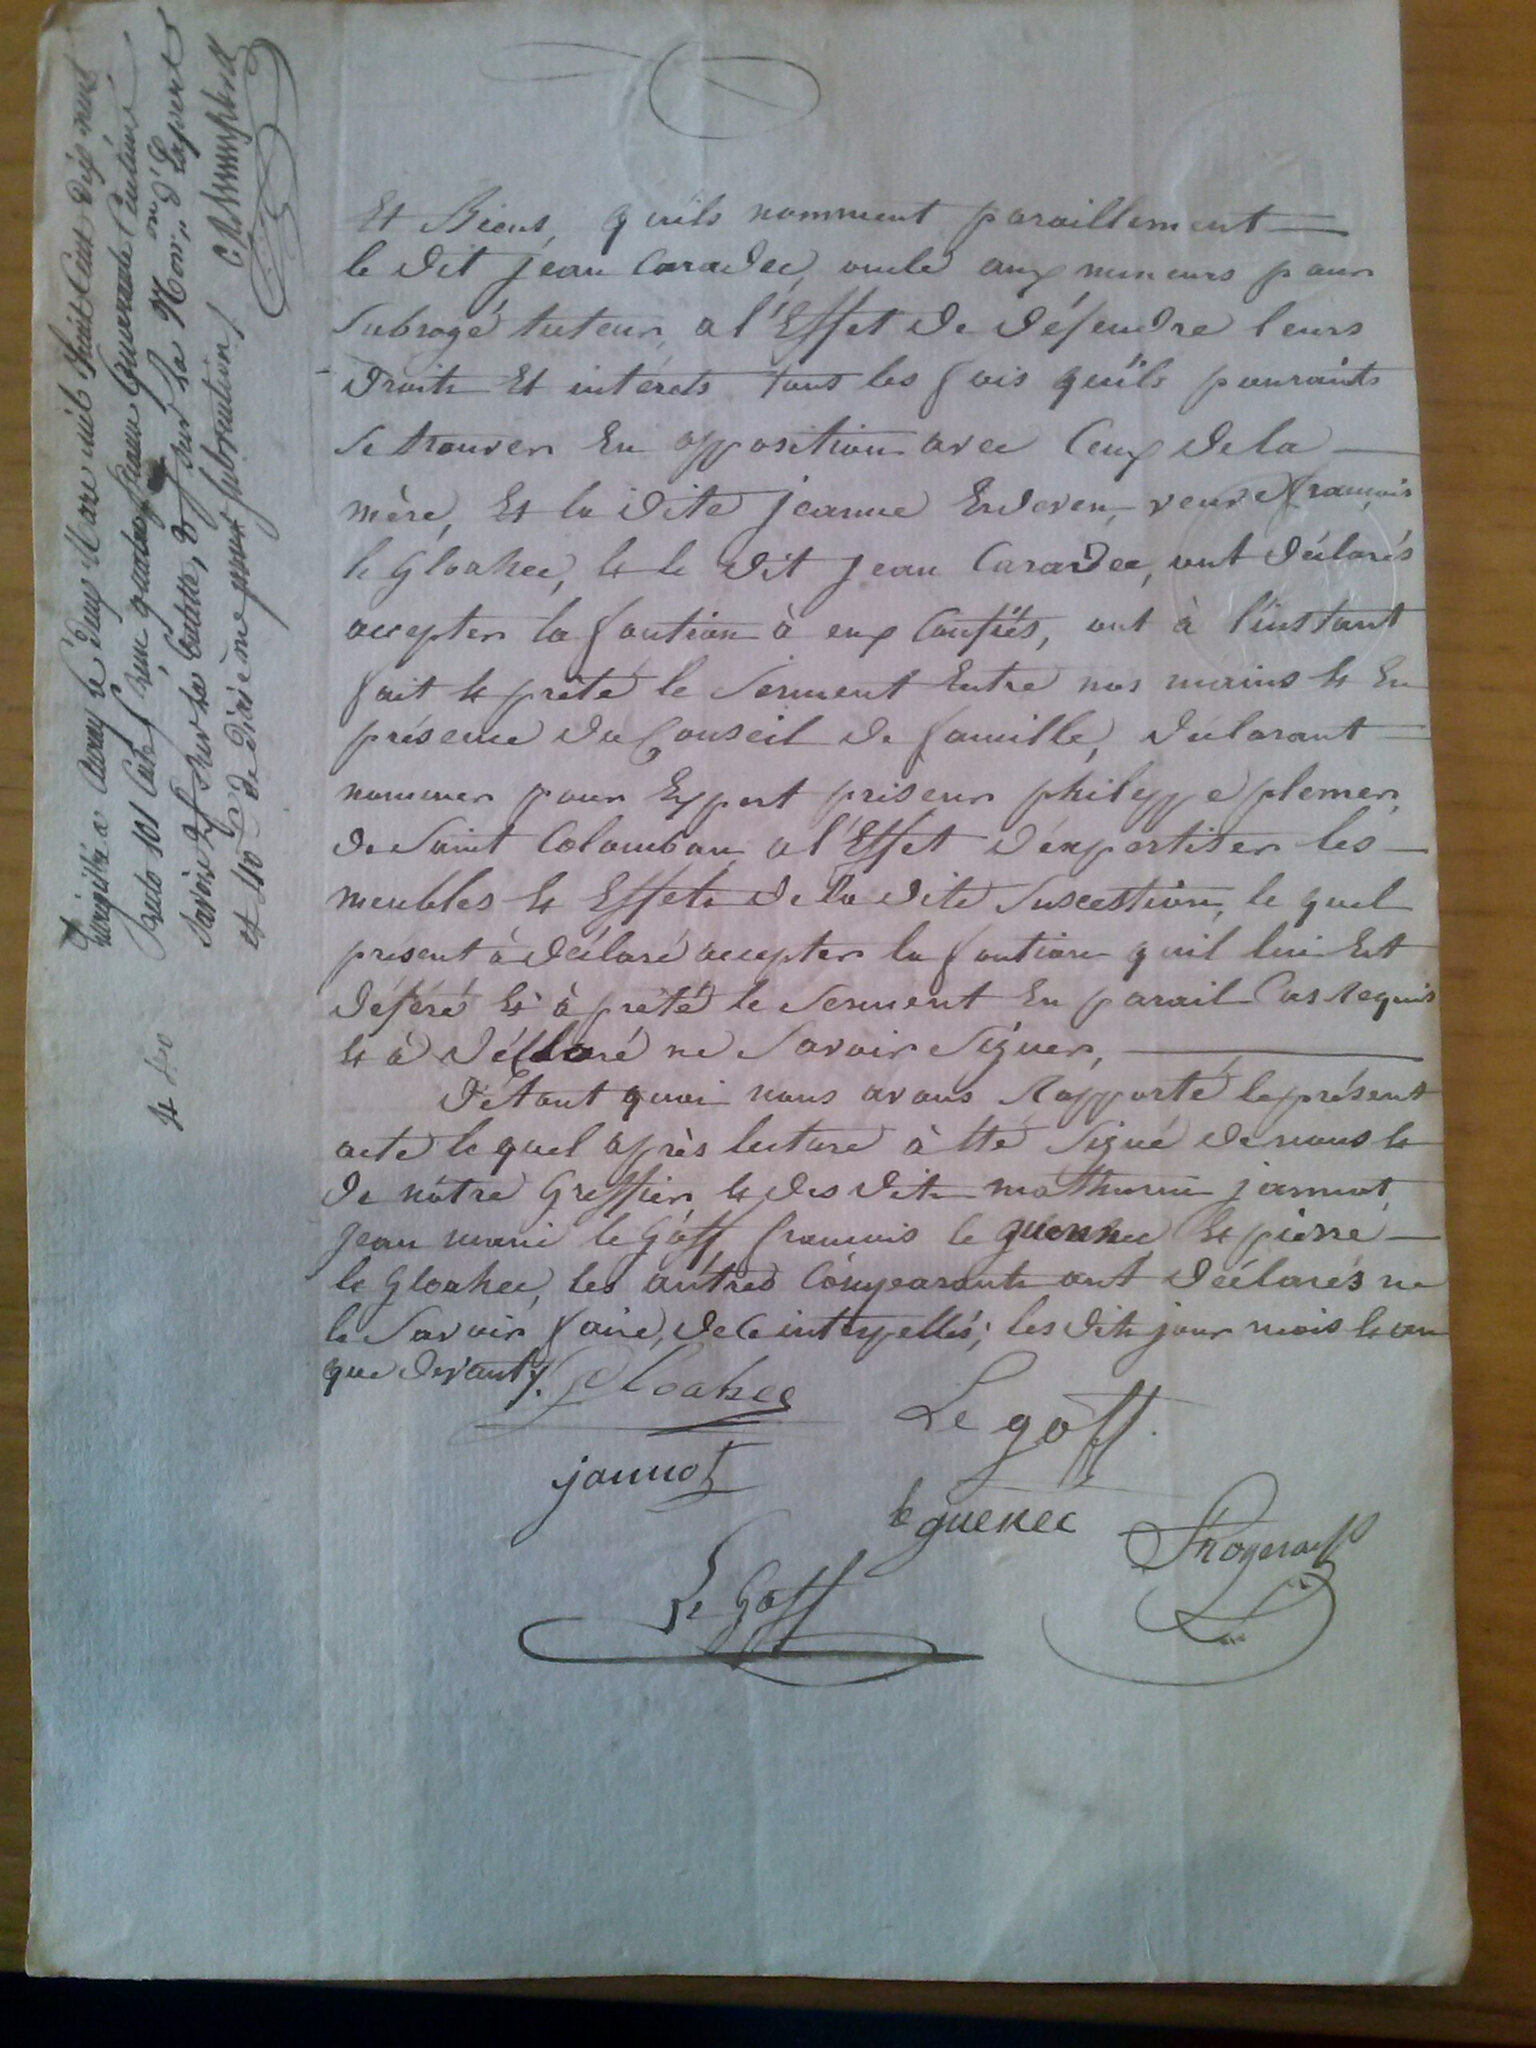 Et Biens, quils nomment paraillement
le dit jean Caradec, oncle aux mineurs pour
subrogé tuteur, a l'Effet de défendre leurs
droits Et intérets tous les fois quils pouraints
se trouver En opposition avec Ceux de la
mère, Et la dite jeanne Enderen, veuve francois
le Gloahec, & le dit jean Caradec, ont déclarés
accepter la fontion à eux Confiés, ont à l'instant
fait & prété le serment Entre nos mains & En
présence du Conseil de famille, déclarant
nommer pour Expert priseur philippe plemer,
de Saint Colomban, a l'Effet d'expertiser les
meubles & Effets de la dite Suscestion, le quel
présent à déclaré accepter la fontion quil lui Est
déféré & à prété le serment En parail Cas requis
& à déclaré ne Savoir Signer,
d'étant quoi nous avons Rapporté le présent
acte le quel après lecture à tté Signé de nous &
de nôtre Greffier, & des dits mathurin jannot,
Jean marie le Goff, francois le guennec & pierre
le Gloahec, les autres Comparants ont déclarés ne
le Savoir faire, de Ce interpellés; les dits jour mois & an
que devant /.
Gloahec
Le goff
jannot
le guenec
Le Goff
Enregistré a Auray le deux Mars mil huit Cent dix neuf
Recto 101 Case
Savoir sur la tutelle, 2f sur la Nom.on d'Expert
et 40c de dixième pour subvention /.
4 40